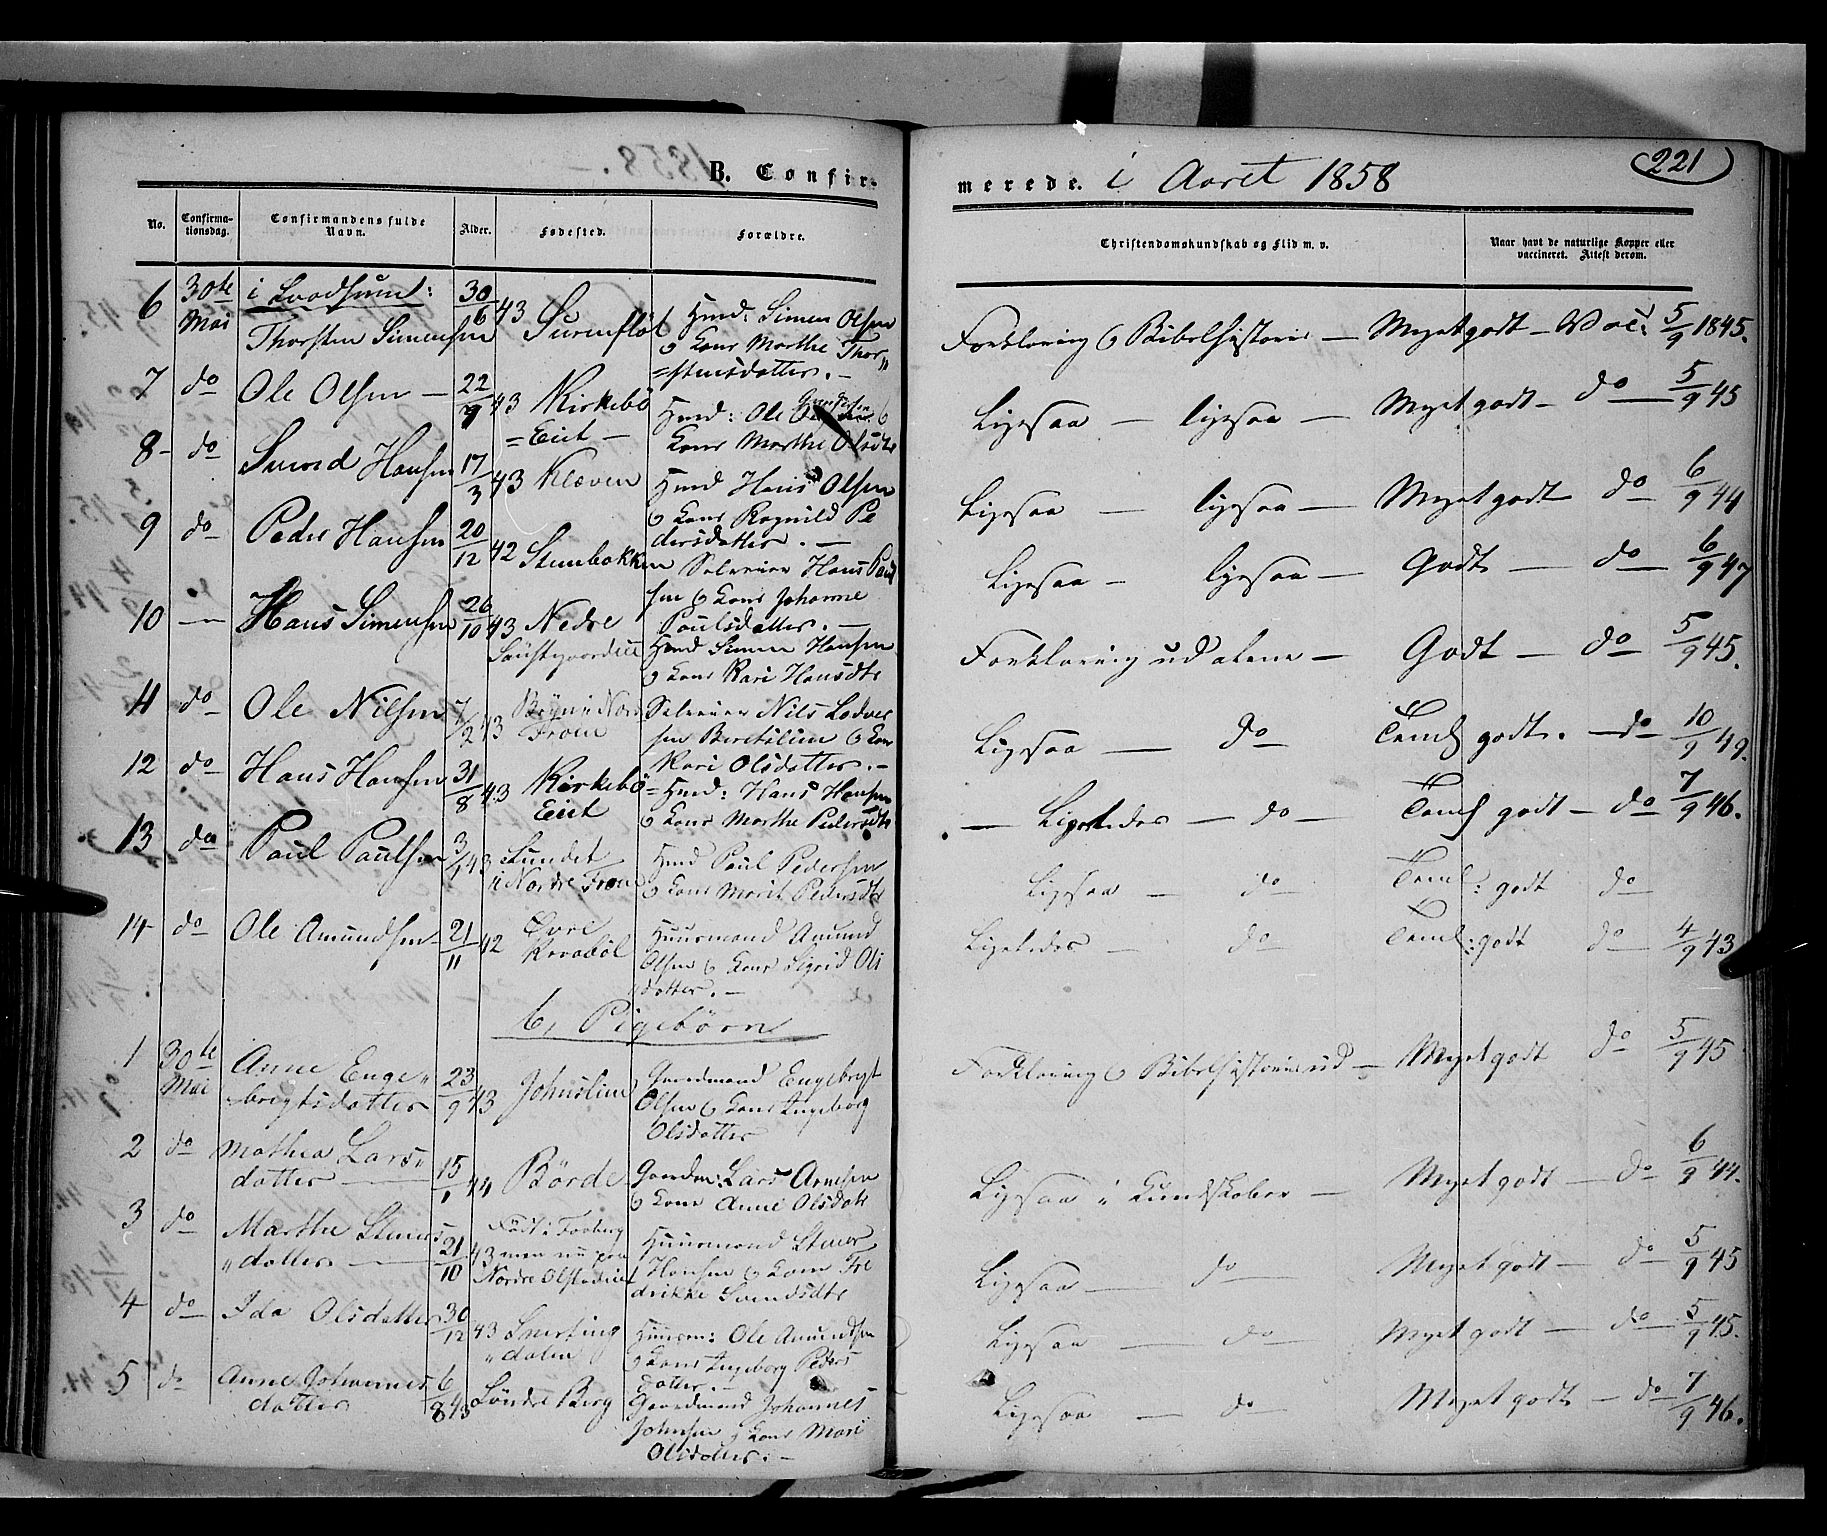 B. Confir-
merede. i Aaret 1858
221
No.
Confirma-
tionsdag.
Confirmandens fulde
Navn.
Alder.
Fødested.
Forældre.
Christendomskundskab og Flid m. v.
Naar havt de naturlige Kopper eller
vaccineret. Attest derom.
6 30te Mai i
Thorsten Simensen 30/6 43 Hmd: Simen Olsen
& Kone Marthe Thor„
=stensdatter. —
Forklaring & Bibelhistorie — Meget godt — Vac: 5/9 1845.
7 do Ole Olsen — 22/9 43 Kirkebö
=Eiet — Hmd: Ole Gundersen &
Kone Marthe Olsdtr
Ligesaa — ligesaa — Meget godt — do — 5/9 45
8 - do Hansen 17/3 43 Kleven Hmd Hans Olsen
& Kone Ragnild Pe
dersdatter. —
Ligesaa — ligesaa — Meget godt do 6/9 44
9 do Peder Hansen 20/12 42 Steenbakken Seleier Hans Paul
sen & Kone Johanne
Paulsdatter. —
Ligesaa — ligesaa — Godt — do — 6/9 47
10 — Hans Simensen 26/10 43 Nedre
Hmd Simen Hansen
& Kone Kari Hansdtr
Forklaring ud alene — Godt — do 5/9 45.
do Ole Nilsen 7/2 43
Seleier Nils
sen & Kone
Kari Olsdatter. —
Ligesaa — do Teml godt. — do 10/9 49.
12 do Hans Hansen 31/8 43 Kirkebö=
Eiet Hmd: Hans Hansen
& Kone Marthe Pedersdtr
— Ligeledes — do — Teml godt — do 7/9 46.
13 do Paul Paulsen 3/1 43 Lundet
i Nordre Fron Hmd Paul Pedersen
& Kone Marit Pedersdtr
Ligesaa do Teml: godt do
14 do Ole Amundsen 21/11 42 Övre
Huusmand Amund
Olsen & Kone Sigrid Ols
„datter. —
Ligeledes — do Teml: godt do 4/9 43
b, Pigebörn
1 30te Mai Anne Enge„
bregtsdatter 23/9 43 Gaardmand Engebregt
Olsen & Kone Ingeborg
Olsdatter
Forklaring & Bibelhistorie ud — Meget godt do 5/9 45
2 do Mathea Lars„
datter — 15/1 44 Börde Gaardm: Lars Arnesen
& Kone Anne Olsdatr
Ligesaa i Kundskaber — Meget godt — do 6/9 44.
3 do Marthe Steners
„datter — 21/10 43 Født i Faaberg
men nu paa
Nordre Huusmand Stener
Hansen & Kone Fre
drikke Svendsdtr
Ligesaa — do Meget godt — do 5/9 45
4 do Ida Olsdatter 30/12 43
„dalen Huusm: Ole Amundsen
& Kone Ingeborg Peders
datter. —
Ligesaa — do Meget godt — do 5/9 45.
5 do Anne Johannes
datter 6/8 43 Söndre Berg Gaardmand Johannes
Johnsen & Kone Mari
Olsdatter. —
Ligesaa — do Meget godt — do 7/9 46.